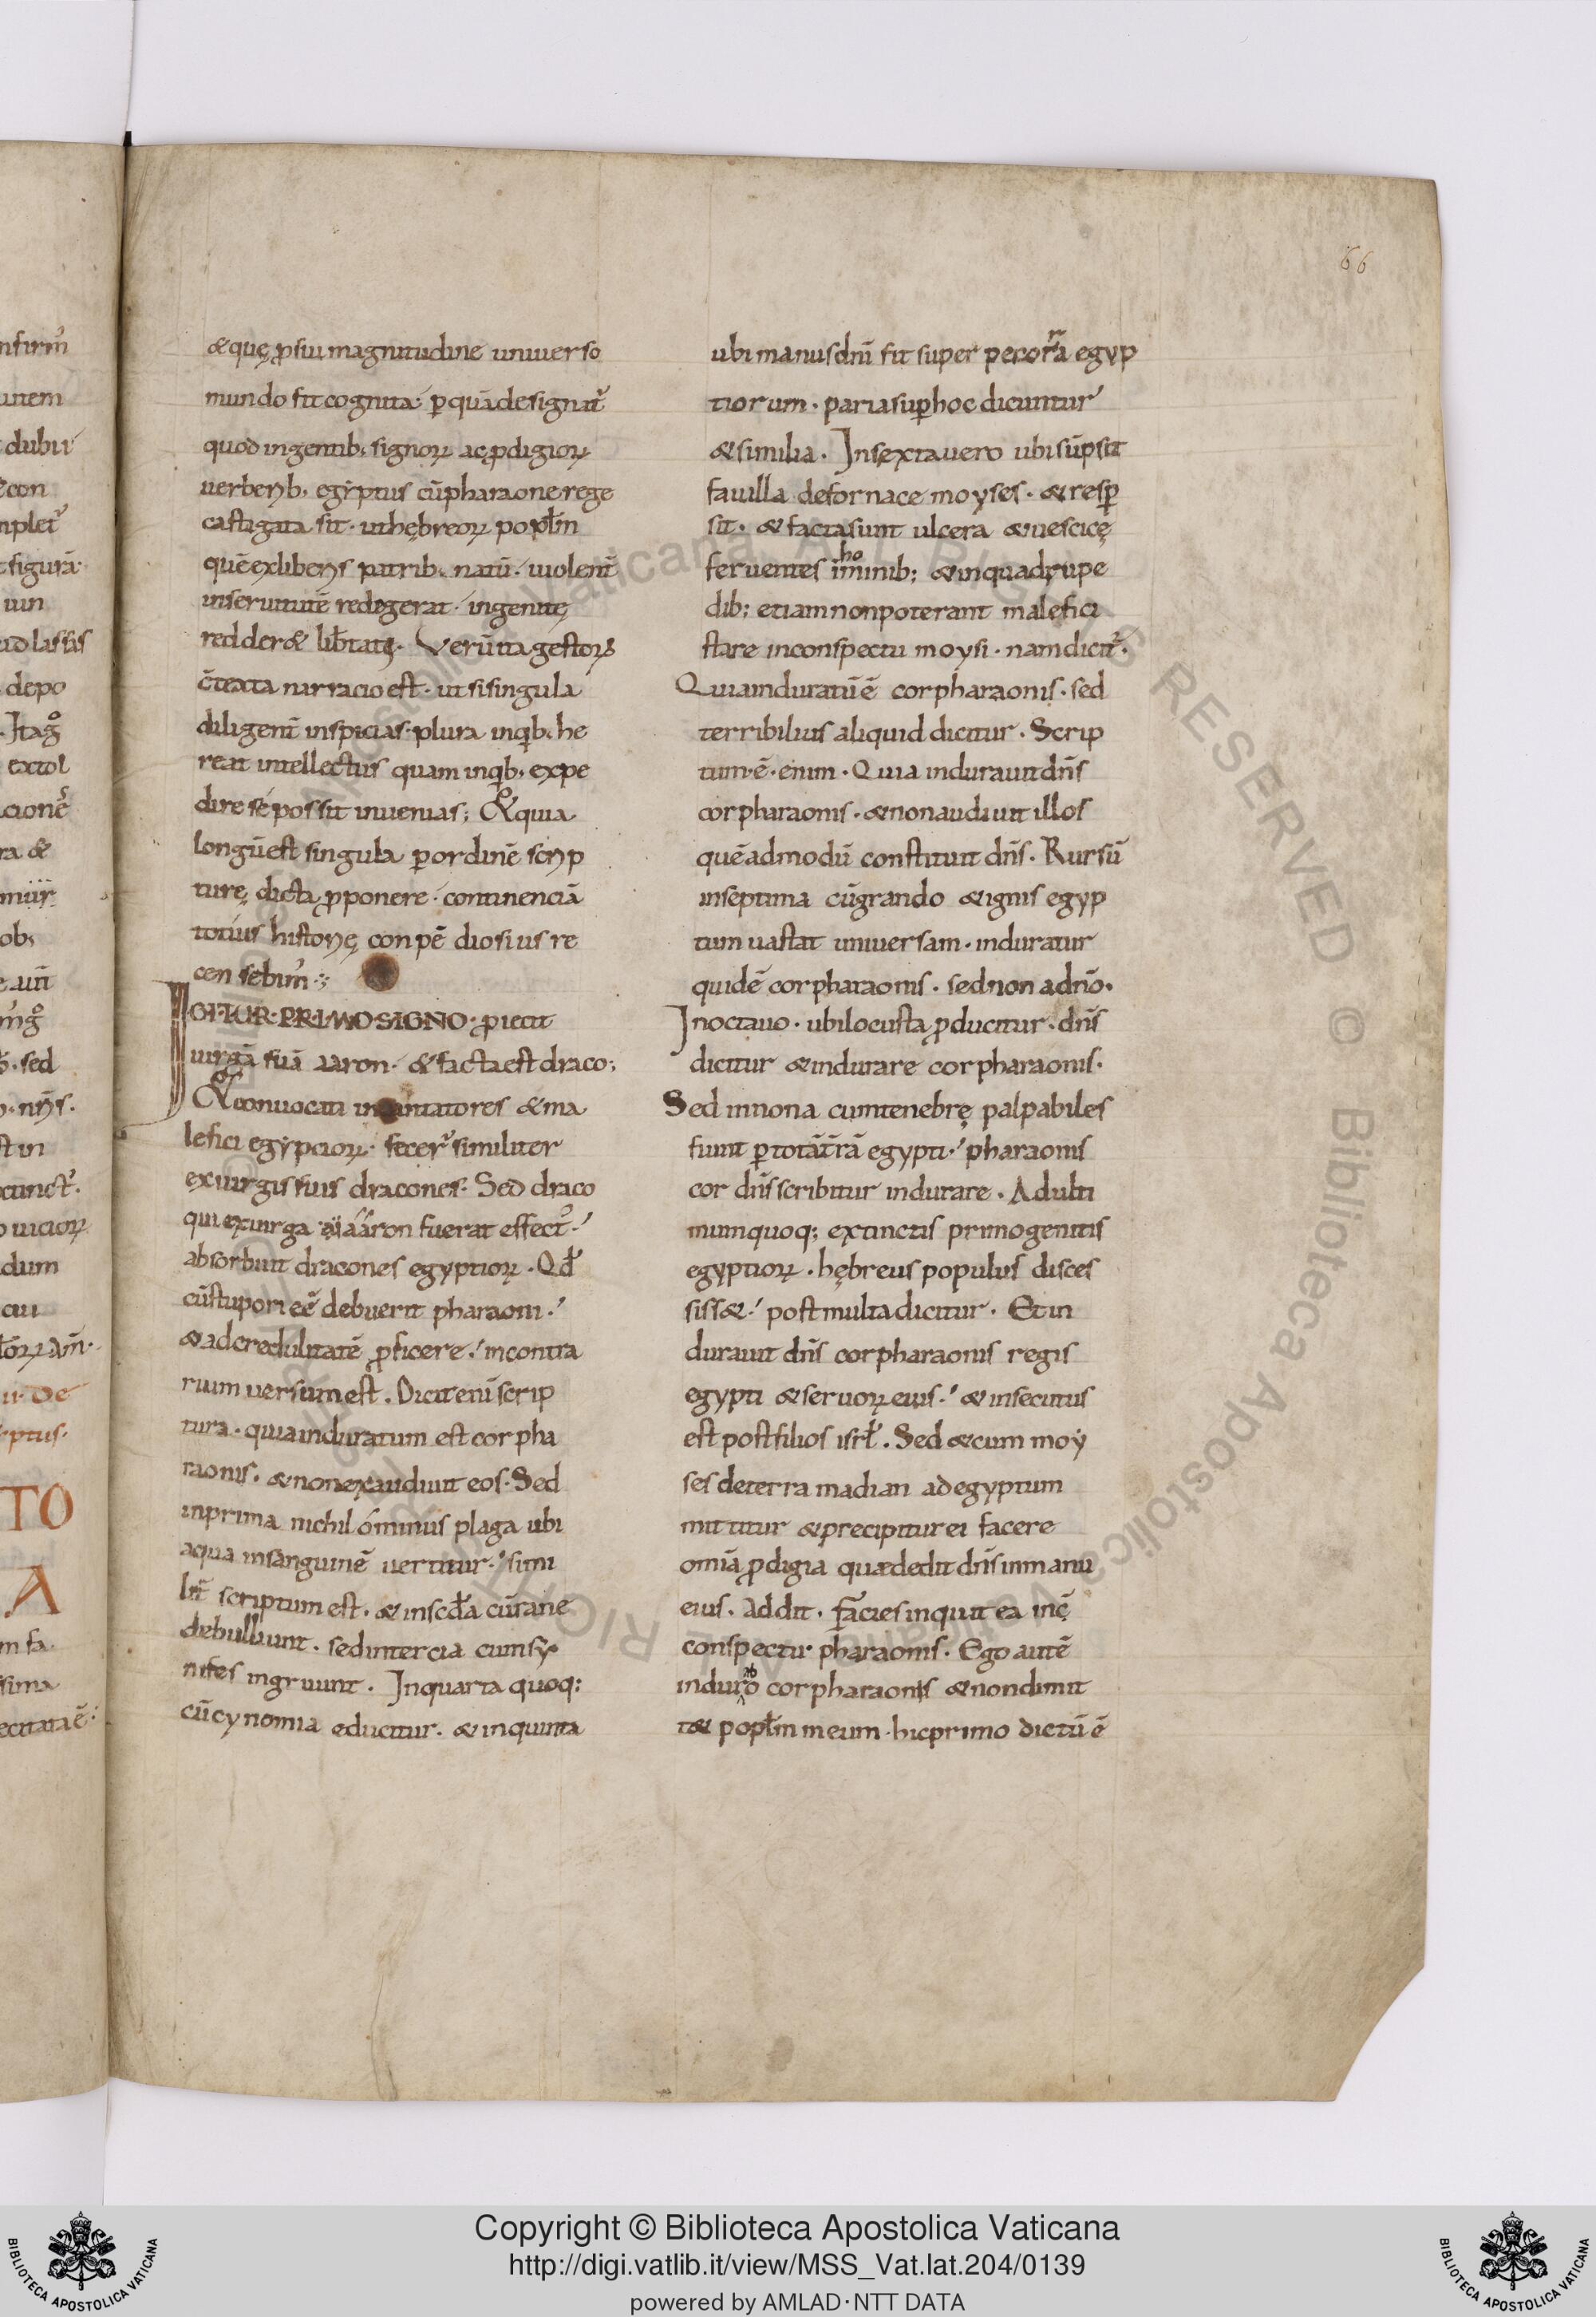 66
&quę ꝓsui magnitudine uniuerso
mundo sit cognita· ꝑ quā designat᷒
quod ingentib; signoꝝ ac ꝓdigioꝝ
uerberib; egyptus cū pharaone rege
castigata sit· ut hębreoꝝ popłm
quē ex liberis patrib; natū· uiolent̄
in seruitutē redegerat· ingenitę
redder& lib̄tatę· Verū ita gestoꝝ
c̄texta narracio est· ut si singula
diligent̄ inspicias· plura in qib; he
reat intellectus quam in qib; expe
dire se possit inuenias; & quia
longū est singula ꝑ ordinē scrip
turę dicta ꝓponere· continenciā
totius historię conpēdiosius re
censebim᷒·;
IGITUR· PRIMO SIGNO· ꝓiecit
uirgā suā aaron· & facta est draco;
& conuocati incantatores & ma
lefici egypcioꝝ· fecer᷒ similiter
ex uirgis suis dracones· Sed draco
qui ex uirga aaron fuerat effect᷒·
absorbuit dracones egyptioꝝ· Qd̄
cū stupori eē debuerit pharaoni·
& ad credulitatē ꝓficere· in contra
rium uersum est. Dicit eni scrip
tura· quia induratum est cor pha
raonis· & non exaudiuit eos· Sed
in prima nichilominus plaga ubi
aqua in sanguinē uertitur· simi
lit̄ scriptum est. & in scd̄a cū rane
ebulliunt. sed in tercia cum sy
nifes ingruunt. In quarta quoq;
cū cynomia educitur. & in quinta
ubi manus dn̄i fit super pecora egyp
tiorum· paria suꝑ hoc dicuntur
& similia. In sexta uero ubi sūpsit
fauilla de fornace moyses· & resꝑ
sit· & facta sunt ulcera & uescicę
feruentes in hominib; & in quadrupe
dib; etiam non poterant malefici
stare in conspectu moysi· nam dicit᷒·
Quia induratū ē cor pharaonis· sed
terribilius aliquid dicitur. Scrip
tum·ē·enim· Quia indurauit dn̄s
cor pharaonis· & non audiuit illos
quēadmodū constituit dn̄s. Rursū
in septima cū grando & ignis egyp
tum uastat uniuersam· induratur
quidē cor pharaonis· sed non a dn̄o·
In octauo· ubi locusta ꝓducitur· dn̄s
dicitur & indurare cor pharaonis·
Sed in nona cum tenebrę palpabiles
fiunt ꝑ totā t̄rā egypti· pharaonis
cor dn̄s scribitur indurare. Ad ulti
mum quoq; extinctis primogenitis
egyptioꝝ· hębreus populus disces
siss&· post multa dicitur· Et in
durauit dn̄s cor pharaonis regis
egypti & seruoꝝ eius· & insecutus
est post filios isrł. Sed & cum moy
ses de terra madian ad egyptum
mittitur & precipitur ei facere
omiā ꝓdigia quæ dedit dn̄s in manu
eius. Addit. facies inquit ea in
conspectu pharaonis· Ego autē
indurabo cor pharaonis & non dimit
t& popłm meum· hic primo dictū ē
Copyright © Biblioteca Apostolica Vaticana
http://digi.vatlib.it/view/MSS_Vat.lat.204/0139
powered by AMLAD·NTT DATA
BIBLIOTECA APOSTOLICA VATICANA
BIBLIOTECA APOSTOLICA VATICANA